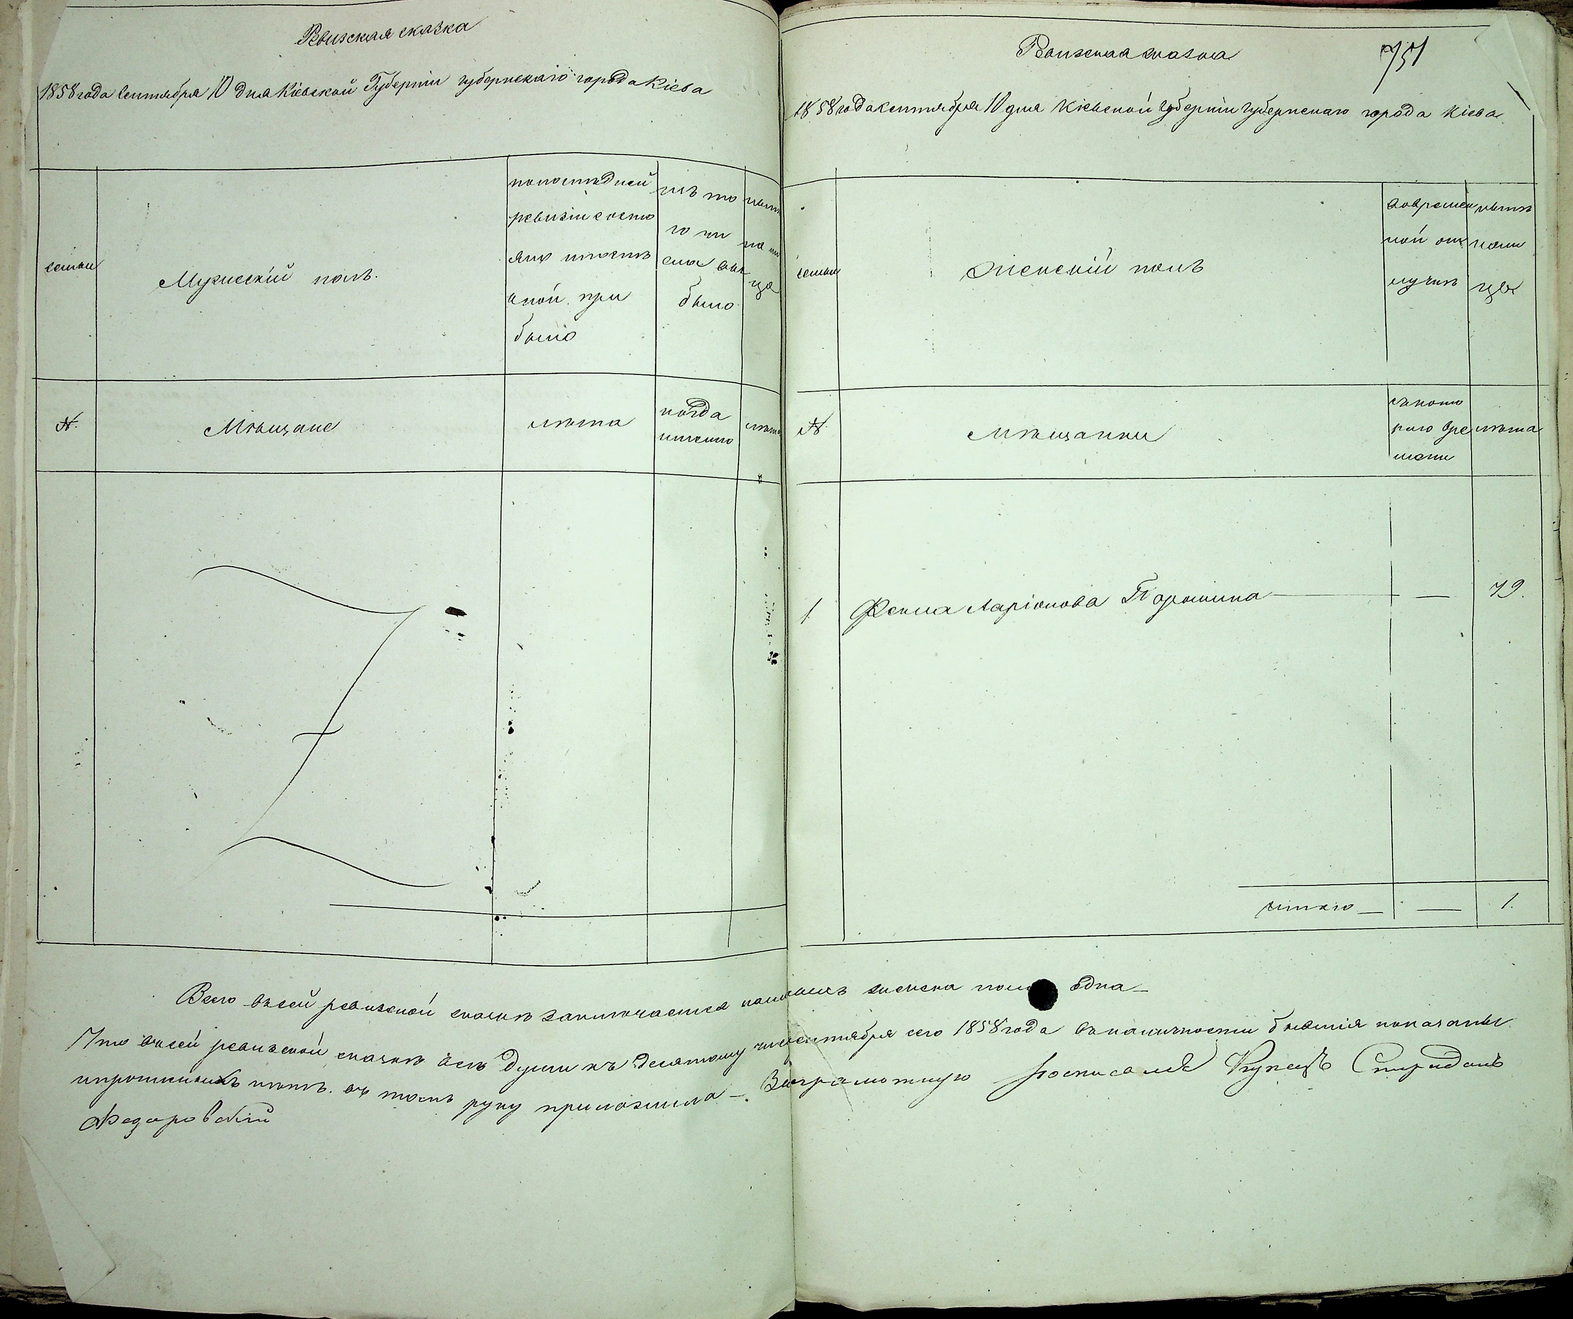 Ревизская сказка
1858 года Сентября 10 дня Кіевской Губерніи губернскаго города Кіева
семьи
Мужескій полъ.
по последней
ревизіи состо
яло и после
оной при
было
изъ то
го чи
сла вы
было
ныне
на ли
цо
№
Мещане
лета
когда
именно
лета
Ревизская сказка
751
1858 года Сентября 10 дня Кіевской Губерніи губернскаго города Кіева
семьи
Женскій полъ
во времен
ной от
лучке
ныне
на ли
цо
№
Мещанки
съ кото
раго вре
мени
лета
1 Фекла Ларіонова Порошина — 79.
Итого — — 1.
Всего въ сей ревизской сказке заключается наличныхъ женска пола одна —
Что въ сей ревизской сказке все души къ десятому числу сентября сего 1858 года въ наличности бывшія показаны
и прописныхъ нетъ. въ томъ руку приложила —. За неграмотную росписался Купецъ Спиридонъ
Федоровскій